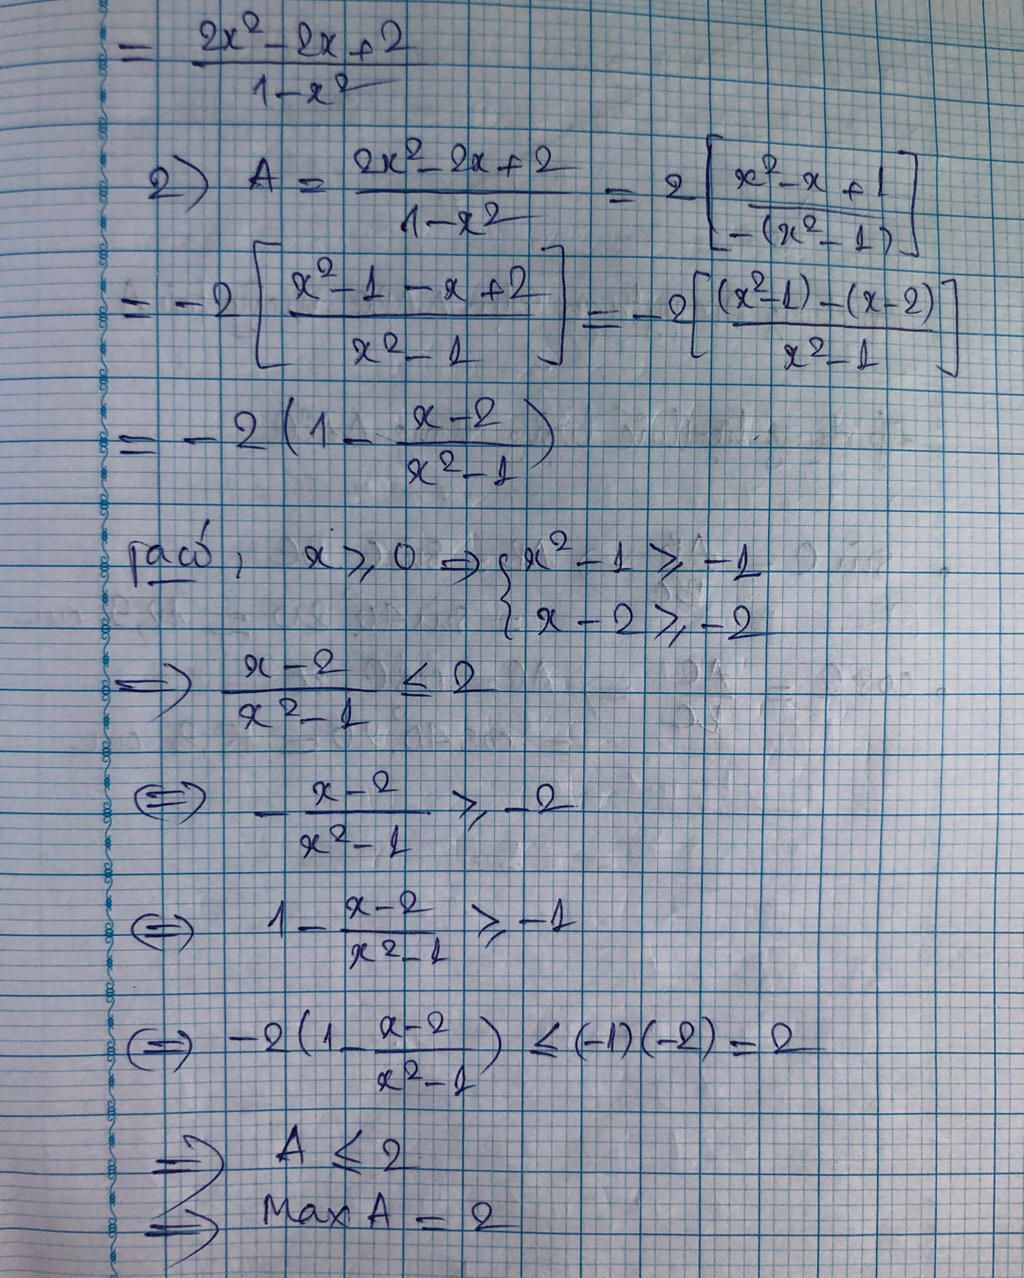 = (2x² - 2x + 2)/(1 - x²)
2) A = (2x² - 2x + 2)/(1 - x²) = 2[(x² - x + 1)/(-(x² - 1))]
= -2[(x² - 1 - x + 2)/(x² - 1)] = -2[((x² - 1) - (x - 2))/(x² - 1)]
= -2(1 - (x - 2)/(x² - 1))
Ta có, x ⩾ 0 ⇒ { x² - 1 ⩾ -1
x - 2 ⩾ -2
⇒ (x - 2)/(x² - 1) ≤ 2
⇔ -(x - 2)/(x² - 1) ⩾ -2
⇔ 1 - (x - 2)/(x² - 1) ⩾ -1
⇔ -2(1 - (x - 2)/(x² - 1)) ≤ (-1)(-2) = 2
⇒ A ≤ 2
⇒ Max A = 2